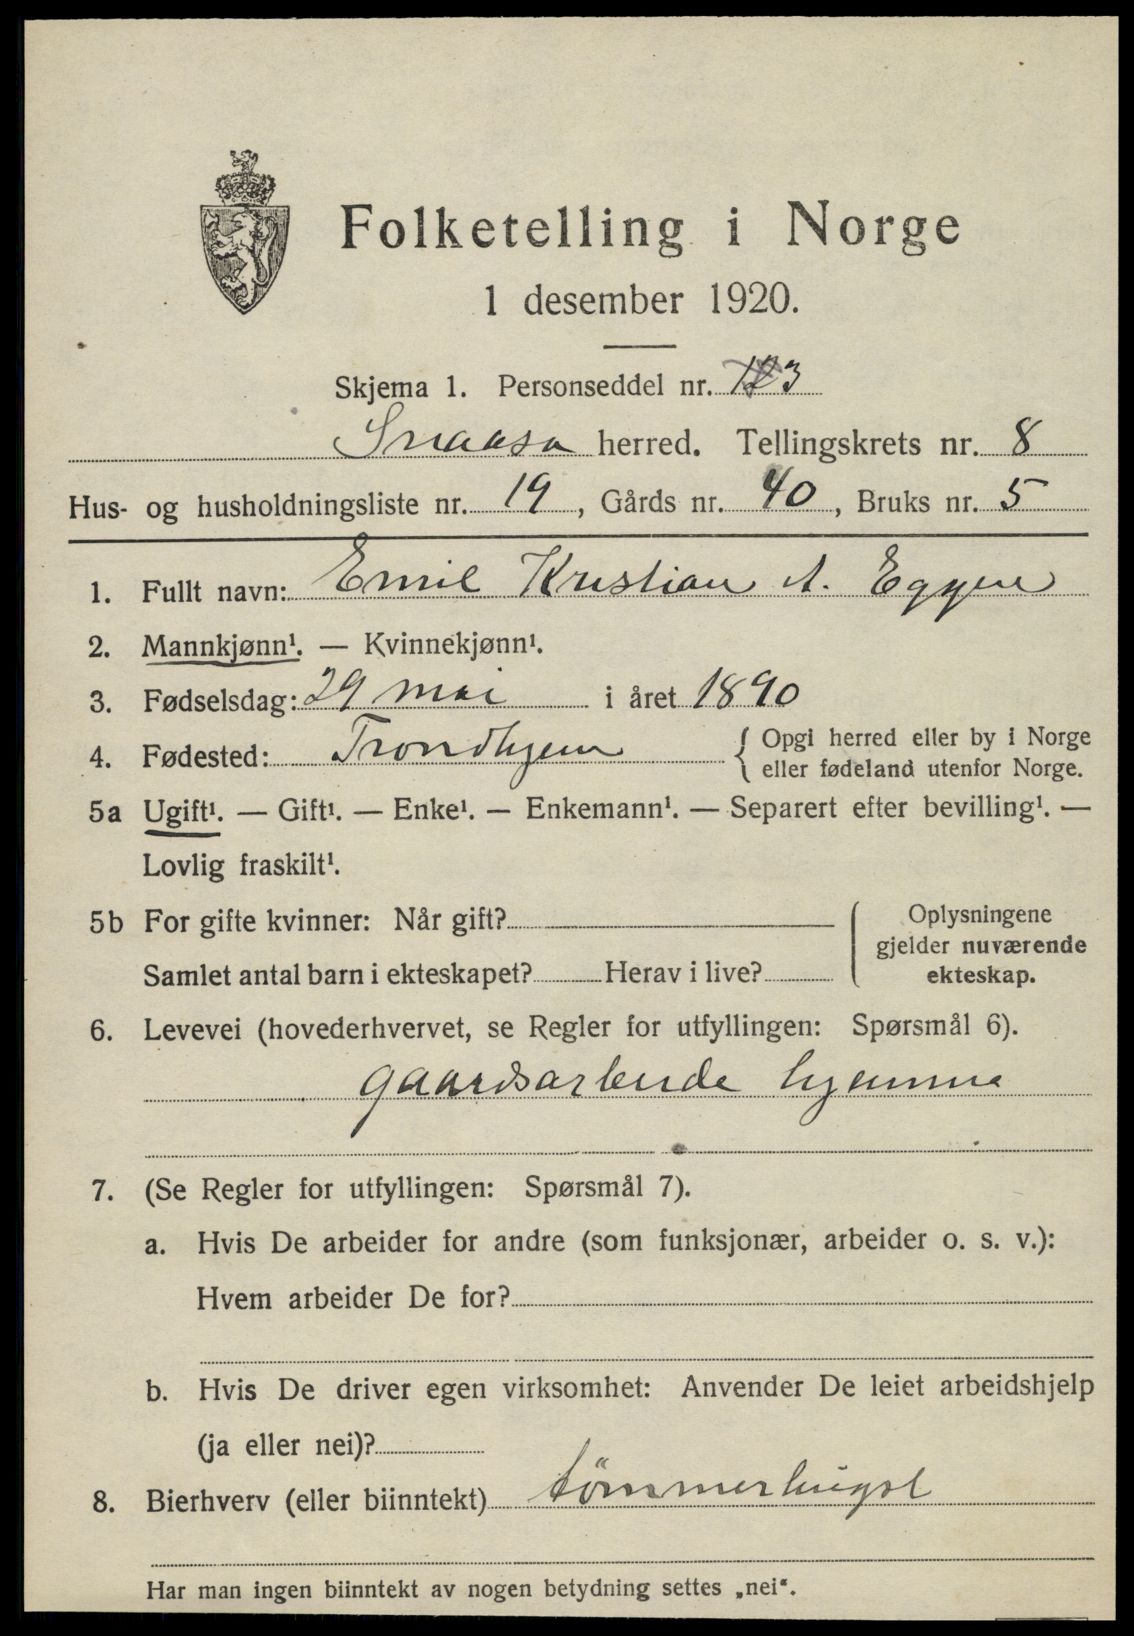 Folketelling i Norge
1 desember 1920.
Skjema 1. Personseddel nr. 3
Snaasa herred. Tellingskrets nr. 8
Hus- og husholdningsliste nr. 19, Gårds nr. 40, Bruks nr. 5
1. Fullt navn: Emil Kristian A. Eggen
2. Mannkjønn¹. — Kvinnekjønn¹.
3. Fødselsdag: 29 mai i året 1890
4. Fødested: Trondhjem { Opgi herred eller by i Norge
eller fødeland utenfor Norge.
5a Ugift¹. — Gift¹. — Enke¹. — Enkemann¹. — Separert efter bevilling¹. —
Lovlig fraskilt¹.
5b For gifte kvinner: Når gift? Oplysningene
gjelder nuværende
Samlet antal barn i ekteskapet? Herav i live? ekteskap.
6. Levevei (hovederhvervet, se Regler for utfyllingen: Spørsmål 6).
gaardsarbeide hjemme
7. (Se Regler for utfyllingen: Spørsmål 7).
a. Hvis De arbeider for andre (som funksjonær, arbeider o. s. v.):
Hvem arbeider De for?
b. Hvis De driver egen virksomhet: Anvender De leiet arbeidshjelp
(ja eller nei)?
8. Bierhverv (eller biinntekt) tømmerhugst
Har man ingen biinntekt av nogen betydning settes „nei“.